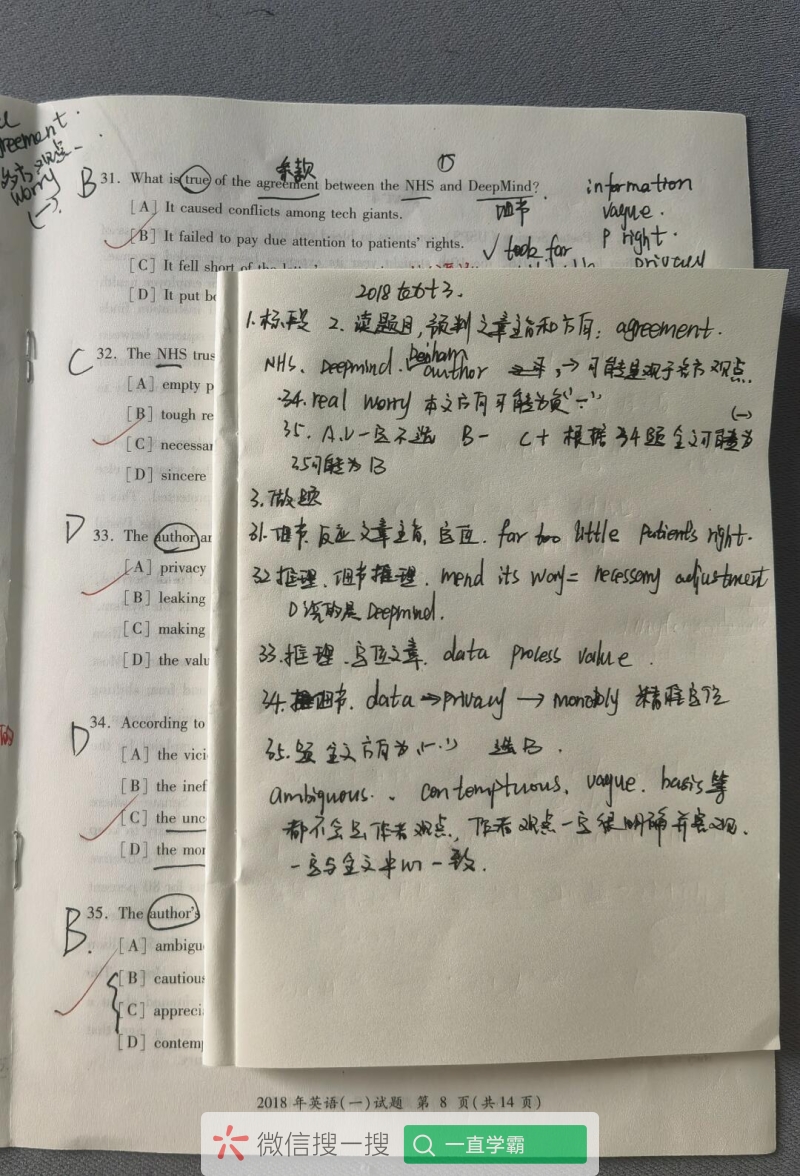 agreement.
worry
(一).
条款
①
B 31. What is true of the agreement between the NHS and DeepMind?
细节
information
vague.
P right.
privacy
[A] It caused conflicts among tech giants.
[B] It failed to pay due attention to patients' rights.
✓ took far
[C] It fell short of the latter's
[D] It put be
C 32. The NHS trus
[A] empty p
[B] tough re
[C] necessar
[D] sincere
D 33. The author ar
[A] privacy
[B] leaking
[C] making
[D] the valu
D 34. According to
[A] the vici
[B] the inef
[C] the unc
[D] the mor
B. 35. The author's
[A] ambigu
[B] cautious
[C] appreci
[D] contem
2018 text 3.
1.标段 2.读题目,预判文章主旨和方向: agreement.
NHS. Deepmind. author → 可能是观于各方观点.
34. real worry 本文方向可能为负"一"
35. A.D一定不选 B- C+ 根据34题全文可能为(一)
35可能为B
3.做题
31.细节反应文章主旨,定位. far too little patients right.
32推理、细节推理. mend its way= necessary adjustment
D说的是Deepmind.
33.推理.定位文章. data process value.
34.细节. data → privacy → monobly 精准定位
35.题全文方向为(一) 选B.
ambiguous. contemptuous. vague. basis等
都不会是作者观点,作者观点一定很明确并客观.
一定与全文中心一致.
2018年英语(一)试题 第 8 页(共14页)
微信搜一搜
一直学霸